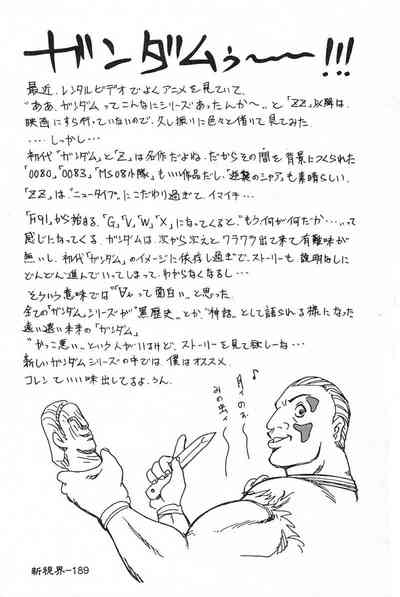 ガンダムぅ〜〜!!!
最近、レンタルビデオでよくアニメを見ていて、
"ああ、ガンダムってこんなにシリーズあったんか〜"、と「ZZ」以降は、
映画にすら行っていないので、久し振りに色々と借りて見てみた。
‥‥しっかし‥‥
初代「ガンダム」と「Z」は名作だよね。だからその間を背景につくられた
「0080」、「0083」「MS08小隊」もいい作品だし、「逆襲のシャア」も素晴らしい。
「ZZ」は"ニュータイプ"にこだわり過ぎて、イマイチ‥‥
「F91」から始まる、「G」「V」「W」「X」になってくると、"もう何が何だか‥‥"って
感じになってくる。ガンダムは、次から次えとワラワラ出て来て有難味が
無いし、初代「ガンダム」のイメージに依存し過ぎで、ストーリーも説明なしに
どんどん進んでいってしまって、わからなくなるし‥‥
そういう意味では"∀"って面白い、と思った。
全ての「ガンダム」シリーズが"黒歴史"とか"神話"として語られる様になった
遠い遠い未来の「ガンダム」
"かっこ悪い"‥という人がいるけど、ストーリーを見て欲しーな‥‥
新しいガンダムシリーズの中では、僕はオススメ。
コレンていい味出してるよ、うん。
♪
月ィのネ
みの虫ィ
新視界-189